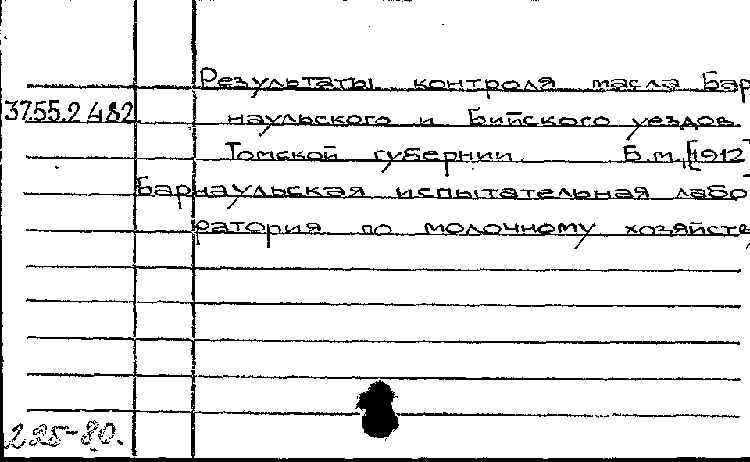 Результаты контроля масла Бар
37.55.2 482 наульского и Бийского уездов
Томской губернии Б.м., [1912]
Барнаульская испытательная лабо
ратория по молочному хозяйств
225-80.